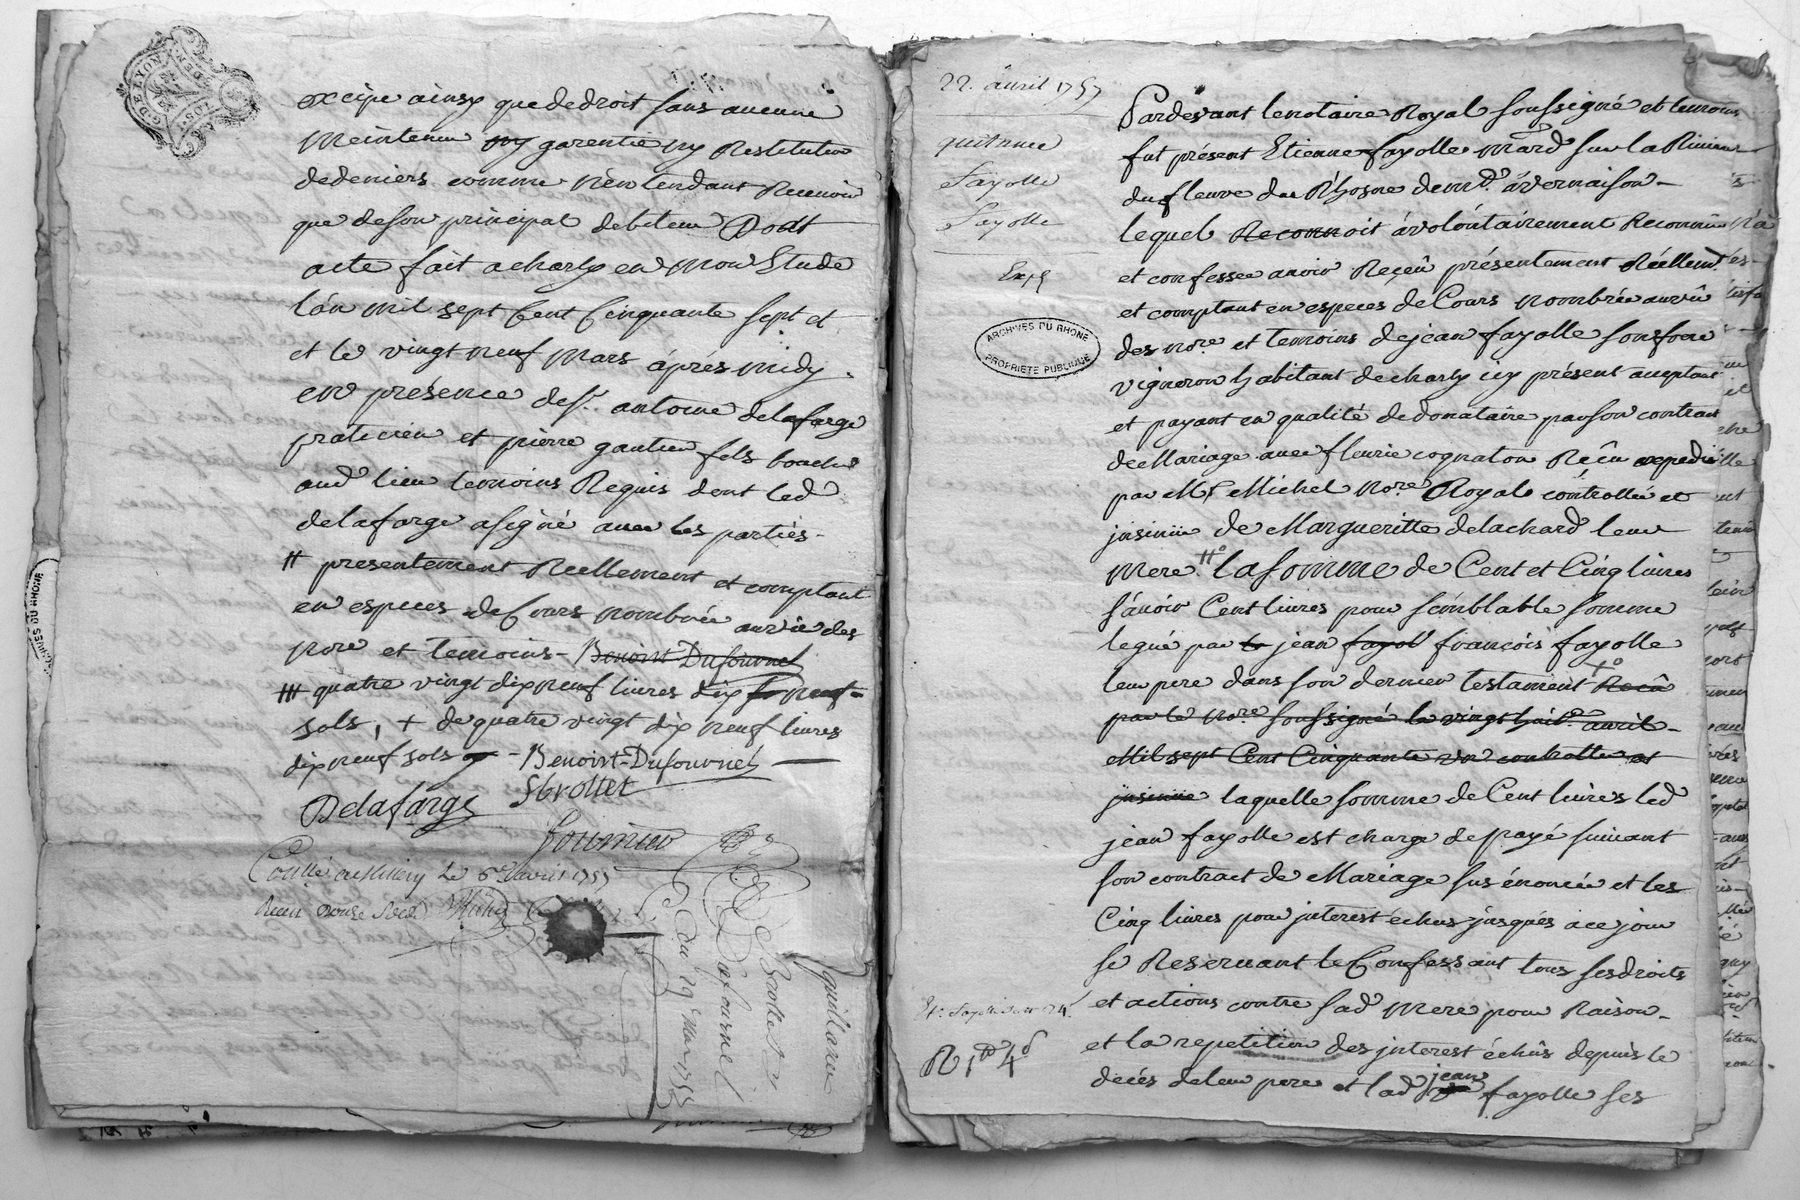 excipe ainsy que de droit sans aucune
Meintenue ny garentie ny Restitution
de deniers comme n'entendant Recevoir
que de son principal debiteur Dont
acte fait a charly en Mon Etude
l'an mil sept Cent Cinquante sept et
et le vingt neuf Mars âprés midy
en presence de sr. antoine delafarge
praticien et pierre gautier fils boucher
aud lieu temoins Requis dont led
delafarge a signé avec les parties -
# presentement Reellement et comptant
en especes de Cours nombrée au vû des
nore et temoins - Benoist Dufournel
quatre vingt dix neuf livres dix neuf
sols, + de quatre vingt dix neuf livres
dix neuf sols - Benoist Dufournel
Delafarge
Brottet
fournier
Contllé a Millery Le 6e avril 1757
Recu douze sols
Du 29 Mars 1757
Dufournel
Brottet
quittance
G DE LYON
ARCHIVES DU RHONE
22. avril 1757
quittance
Fayolle
Fayolle
Exp
ARCHIVES DU RHONE
PROPRIETE PUBLIQUE
Pardevant le notaire Royal soussigné et temoins
fut présent Etienne fayolle mard sur la Riviere
du fleuve du Rhosne demt. a vernaison -
lequel Reconnoit a volontairement Reconnu
et confessée avoir Reçeû présentement Réellemt.
et comptant en especes de Cours nombrée au vû
des nore. et temoins de jean fayolle son frere
vigneron habitant de charly icy présent acceptant
et payant en qualité de donataire par son contract
de Mariage avec fleurie cognaton Reçû expedié
par Me Michel nore. Royal contrôllé et
jnsinué de Margueritte delachard leur
mere # la somme de Cent et Cinq livres
sçavoir Cent livres pour semblable somme
legué par le jean fayol françois fayolle
leur pere dans son dernier testament Reçû
par le nore. soussigné le vingt huit avril -
Mil sept Cent Cinquante six controllé et
jnsinué laquelle somme de Cent livres led
jean fayolle est charge de payé suivant
son contract de Mariage sus énoncée et les
Cinq livres pour jnterest échus jusqués a ce jour
se Reservant le Confessant tous ses droits
et actions contre sad mere pour Raison -
et la repetition des jnterest échûs depuis le
decés de leur pere et lad jean fayolle ses
R 1tt 4s